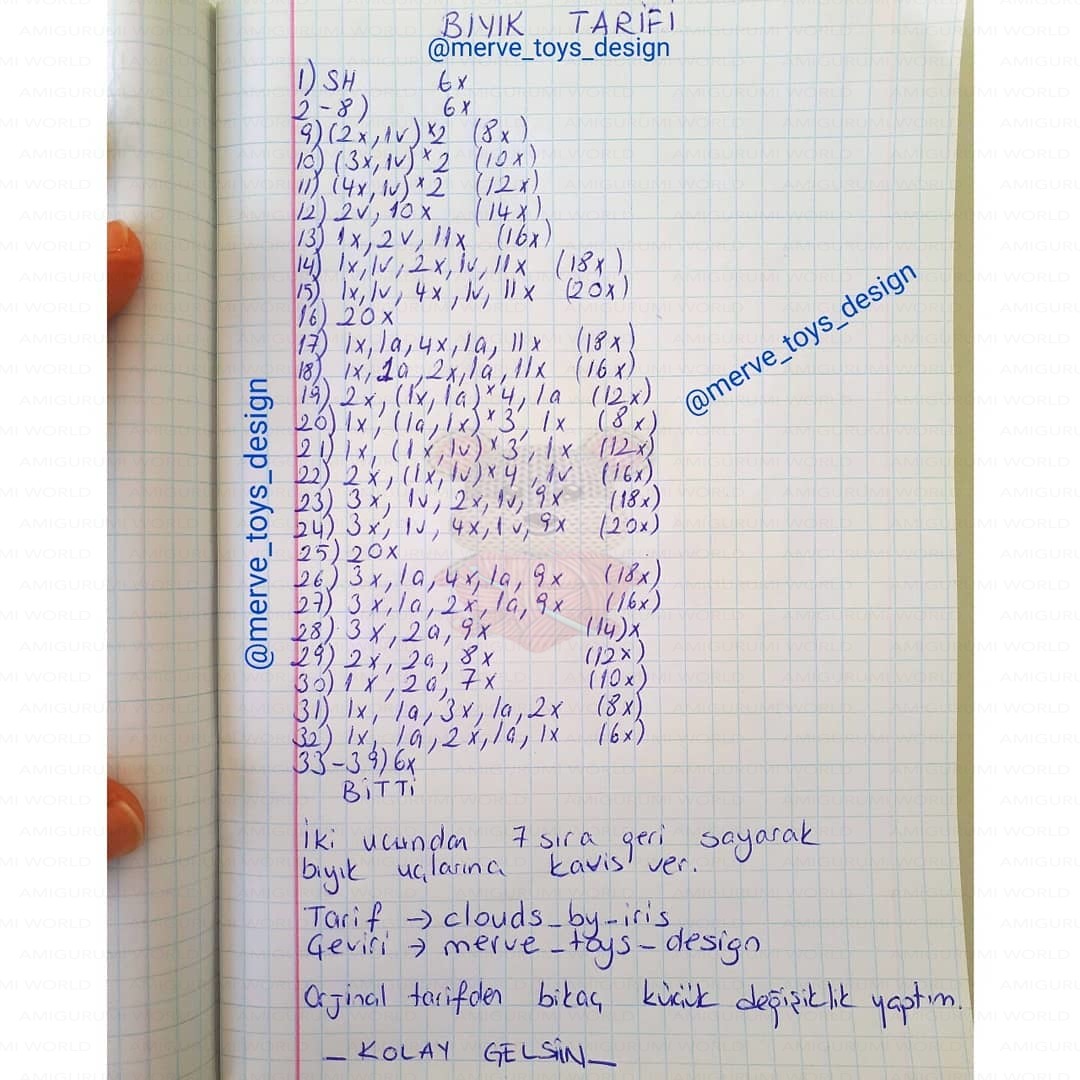 BIYIK TARİFİ
@merve_toys_design
1) SH 6x
2-8) 6x
9) (2x,1v)x2 (8x)
10) (3x,1v)x2 (10x)
11) (4x,1v)x2 (12x)
12) 2v, 10x (14x)
13) 1x, 2v, 11x (16x)
14) 1x,1v, 2x,1v, 11x (18x)
15) 1x,1v, 4x,1v, 11x (20x)
16) 20x
17) 1x,1a,4x,1a, 11x (18x)
18) 1x,1a,2x,1a,11x (16x)
19) 2x, (1x,1a)x4, 1a (12x)
20) 1x, (1a,1x)x3, 1x (8x)
21) 1x, (1x,1v)x3, 1x (12x)
22) 2x, (1x,1v)x4, 1v (16x)
23) 3x, 1v, 2x,1v, 9x (18x)
24) 3x, 1v, 4x,1v, 9x (20x)
25) 20x
26) 3x,1a, 4x,1a, 9x (18x)
27) 3x,1a, 2x,1a, 9x (16x)
28) 3x, 2a, 9x (14)x
29) 2x, 2a, 8x (12x)
30) 1x, 2a, 7x (10x)
31) 1x, 1a, 3x, 1a, 2x (8x)
32) 1x, 1a, 2x, 1a, 1x (6x)
33-39) 6x
BİTTİ
İki ucundan 7 sıra geri sayarak
bıyık uçlarına kavis ver.
Tarif → clouds_by_iris
Çeviri → merve_toys_design
Orjinal tarifden bikaç küçük değişiklik yaptım.
_ KOLAY GELSİN _
@merve_toys_design
@merve_toys_design
AMIGURUMI WORLD